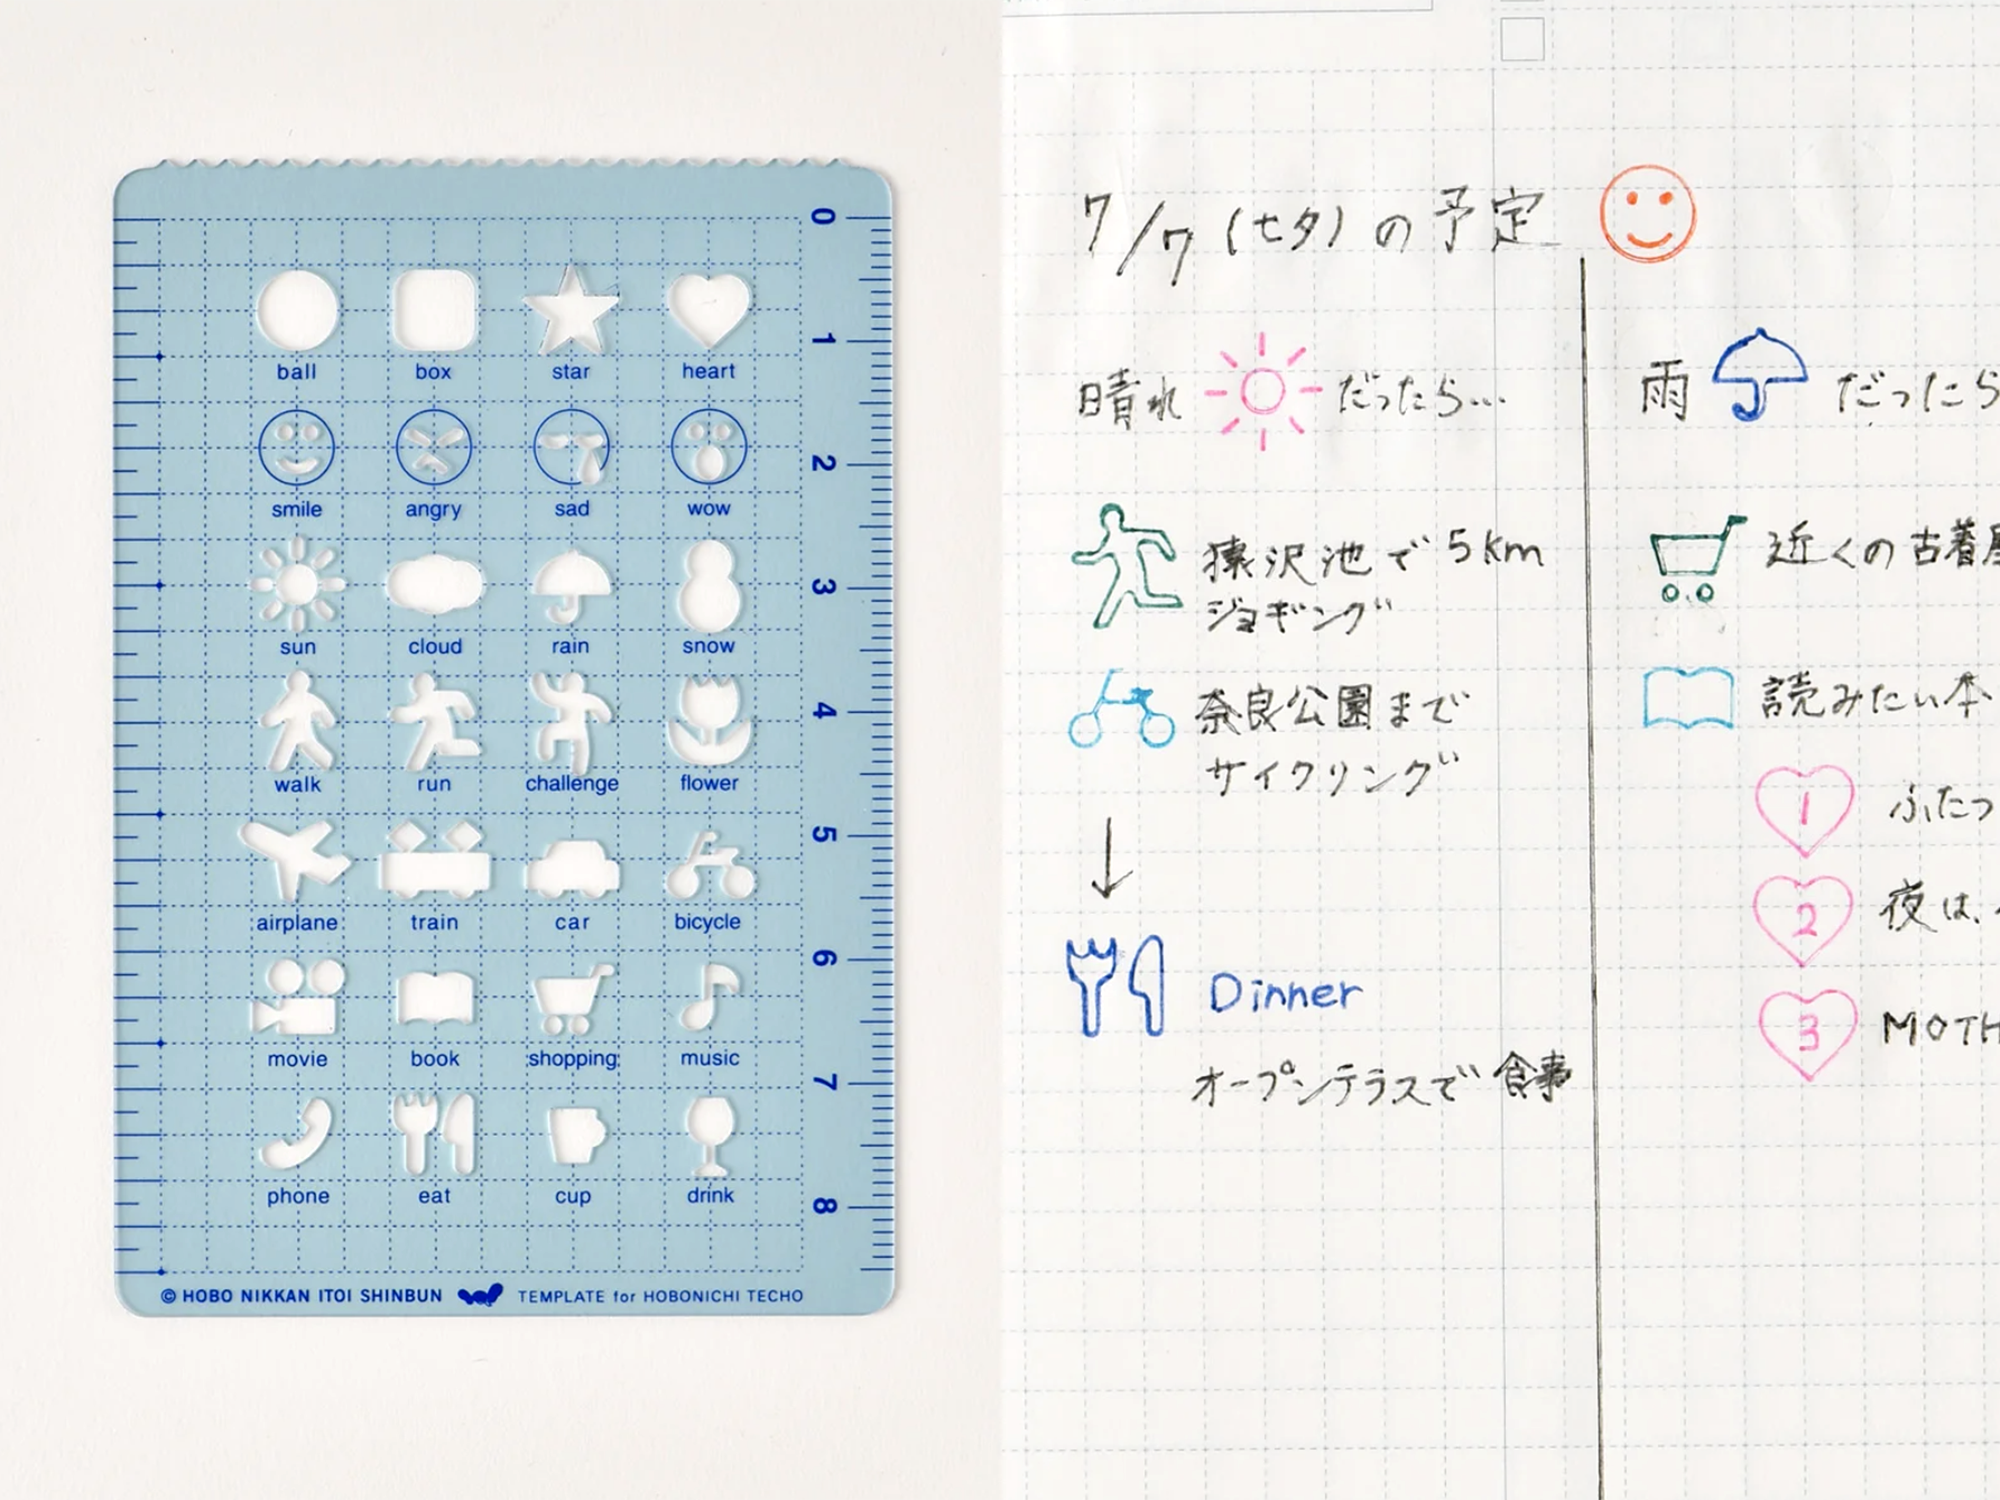 0
1
2
3
4
5
6
7
8
ball box star heart
smile angry sad wow
sun cloud rain snow
walk run challenge flower
airplane train car bicycle
movie book shopping music
phone eat cup drink
© HOBO NIKKAN ITOI SHINBUN TEMPLATE for HOBONICHI TECHO
7/7 (七夕)の予定
晴れ だったら...
猿沢池で 5km
ジョギング
奈良公園まで
サイクリング
Dinner
オープンテラスで 食事
雨 だったら
近くの古着屋
読みたい本
1 ふたつ
2 夜は、
3 MOTH